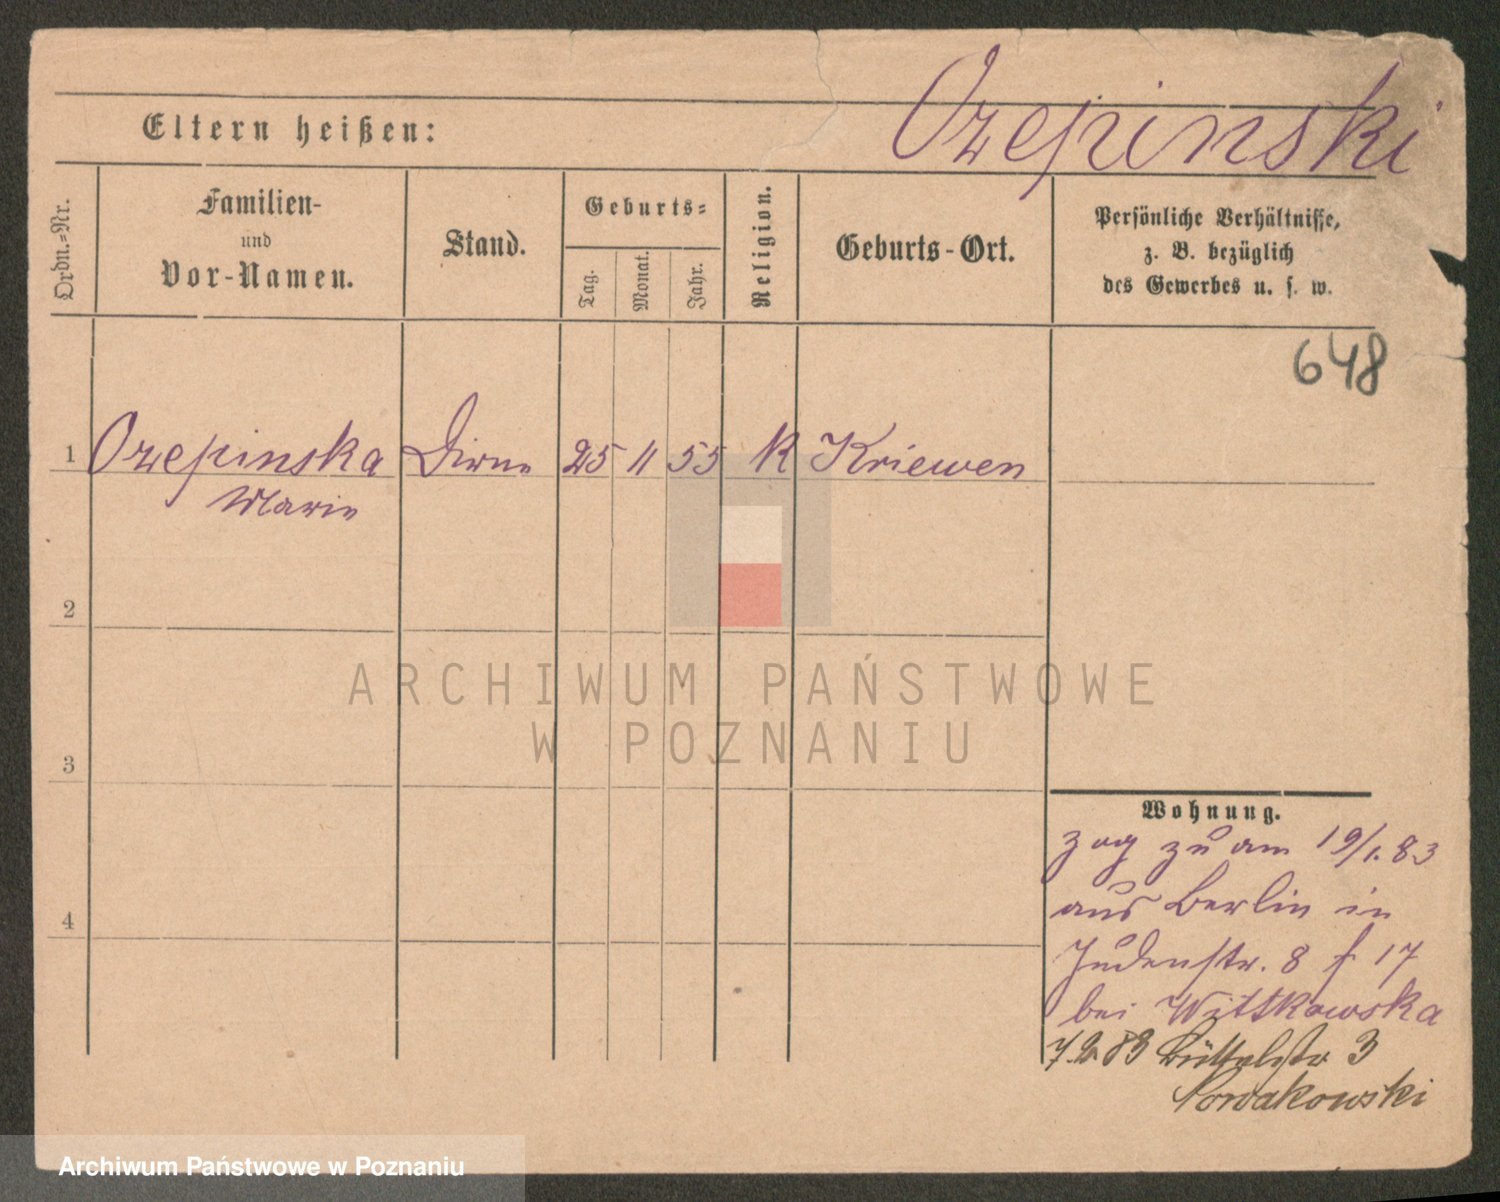 Ozepinski
Eltern heißen:
Ordn.-Nr.
Familien-
und
Vor-Namen.
Stand.
Geburts-
Tag.
Monat.
Jahr.
Religion.
Geburts-Ort.
Persönliche Verhältnisse,
z. B. bezüglich
des Gewerbes u. s. w.
648
1 Ozepinska Dirne 25 11 55 K Kriewen
Marie
2
3
4
Wohnung.
zog zu am 19/1. 83
aus Berlin in
Judenstr. 8 f 17
bei Wittkowska
7.2.83 Büttelstr 3
Nowakowski
ARCHIWUM PAŃSTWOWE
W POZNANIU
Archiwum Państwowe w Poznaniu